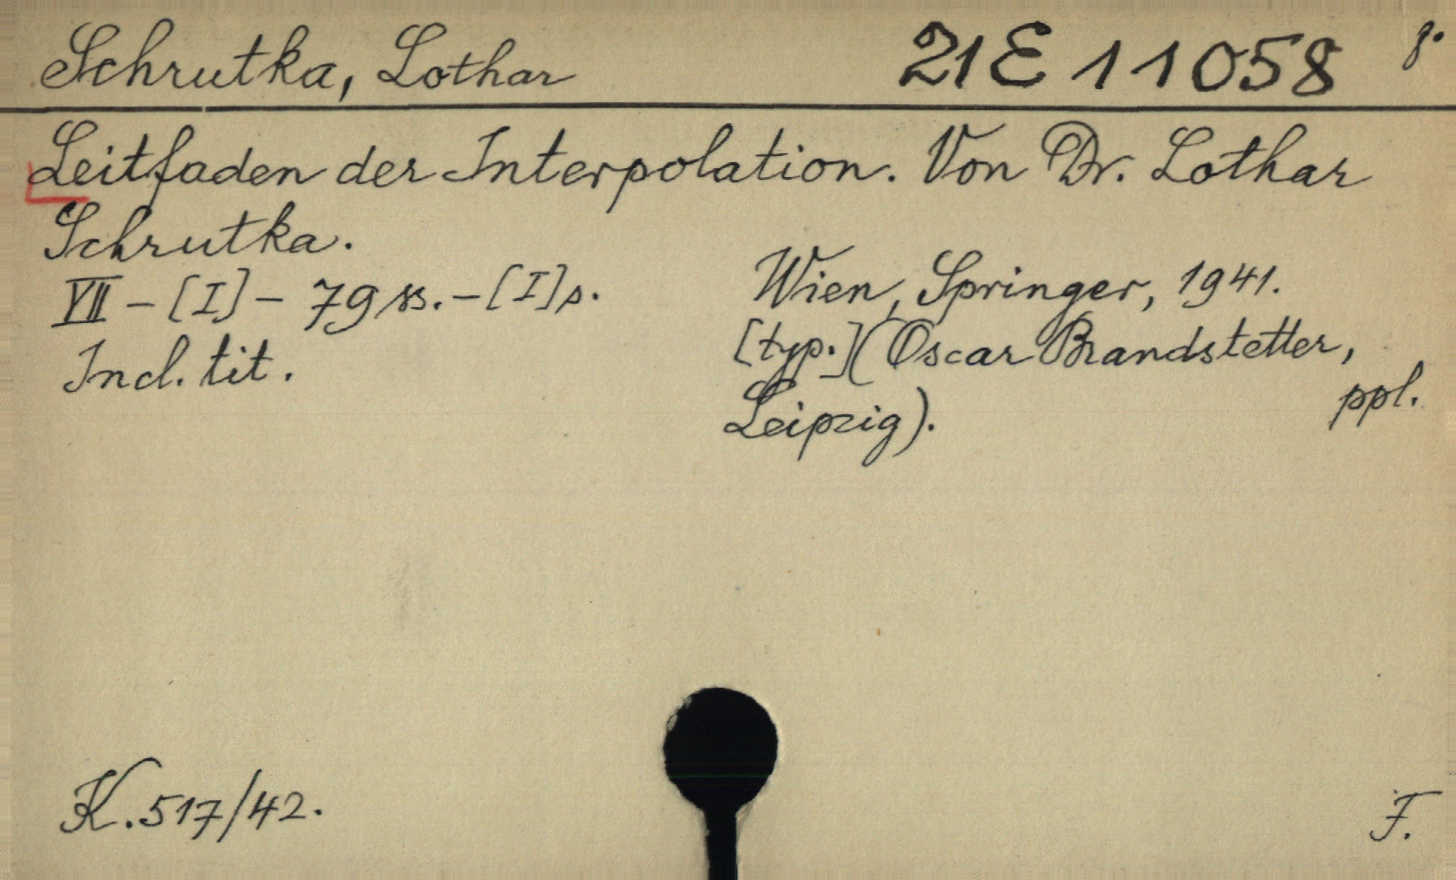 Schrutka, Lothar 21 E 11058 8°
Leitfaden der Interpolation. Von Dr. Lothar
Schrutka.
VII – [I] – 79 ss. – [I] s. Wien, Springer, 1941.
Incl. tit. [typ.] (Oscar Brandstetter,
Leipzig). ppl.
K. 517/42. F.